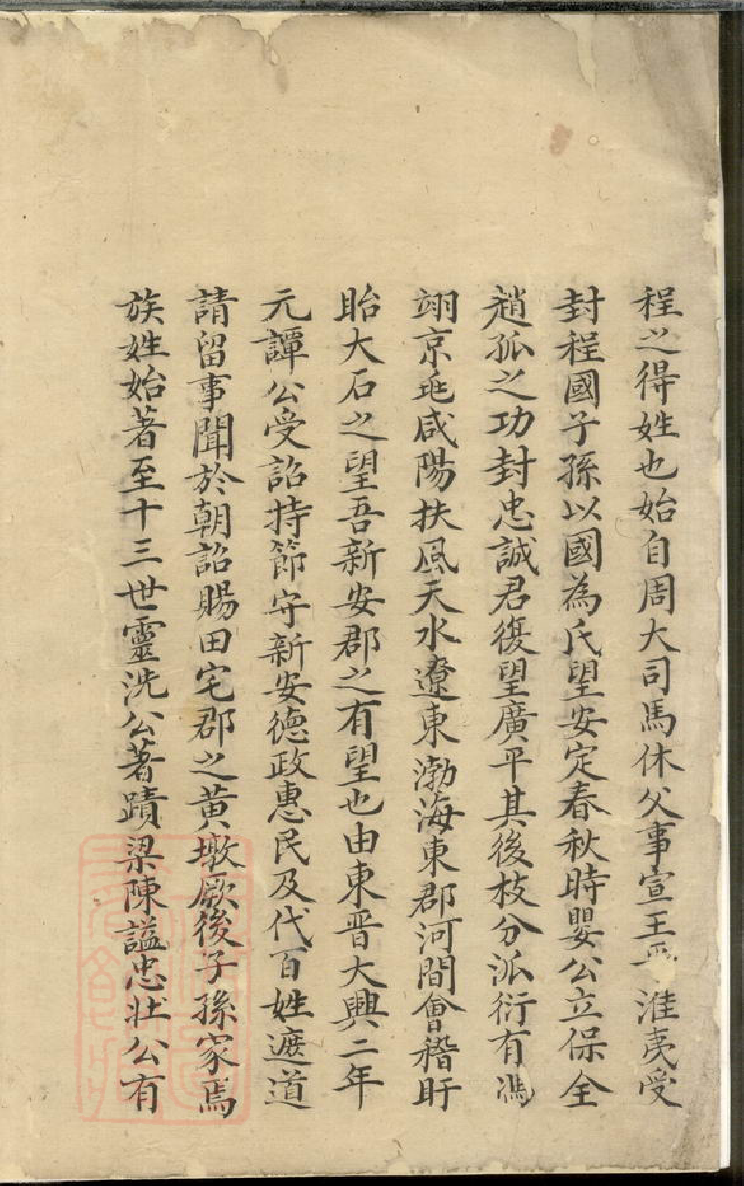 程之得姓也始自周大司馬休父事宣王平淮夷受
封程國子孫以國為氏望安定春秋時嬰公立保全
趙孤之功封忠誠君復望廣平其後枝分派衍有馮
翊京兆咸陽扶風天水遼東渤海東郡河間會稽盱
眙大石之望吾新安郡之有望也由東晋大興二年
元譚公受詔持節守新安德政惠民及代百姓遮道
請留事聞於朝詔賜田宅郡之黄墩厥後子孫家焉
族姓始著至十三世靈洗公著蹟梁陳謚忠壯公有